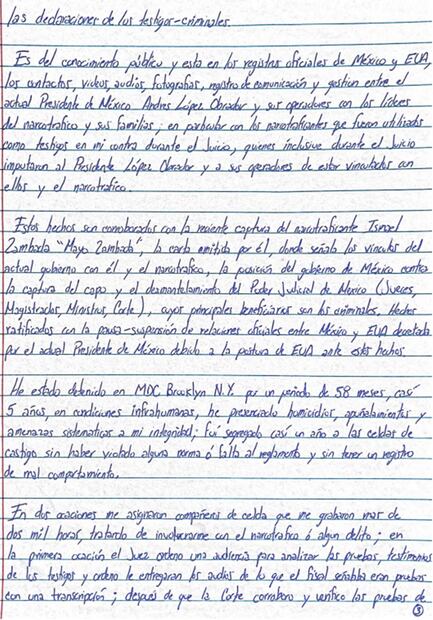 las declaraciones de los testigos-criminales.
Es del conocimiento público y esta en los registros oficiales de México y EUA,
los contactos, videos, audios, fotografías, registro de comunicación y gestion entre el
actual Presidente de México Andres López Obrador y sus operadores con los líderes
del narcotrafico y sus familias; en particular con los narcotraficantes que fueron utilizados
como testigos en mi contra durante el Juicio, quienes inclusive durante el Juicio
imputaron al Presidente López Obrador y a sus operadores de estar vinculados con
ellos y el narcotrafico.
Estos hechos son corroborados con la reciente captura del narcotraficante Ismael
Zambada "Mayo Zambada", la carta emitida por él, donde señala los vinculos del
actual gobierno con él y el narcotrafico, la posición del gobierno de México contra
la captura del capo y el desmantelamiento del Poder Judicial de Mexico (Jueces,
Magistrados, Ministros, Corte), cuyos principales beneficiarios son los criminales. Hechos
ratificados con la pausa-suspensión de relaciones oficiales entre México y EUA decretada
por el actual Presidente de México debido a la postura de EUA ante estos hechos.
He estado detenido en MDC Brooklyn N.Y. por un periodo de 58 meses, casí
5 años, en condiciones infrahumanas, he presenciado homicidios, apuñalamientos y
amenazas sistematicas a mi integridad; fuí segregado casí un año a las celdas de
castigo sin haber violado alguna norma ó falta al reglamento y sin tener un registro
de mal comportamiento.
En dos ocaciones me asignaron compañeros de celda que me grabaron mas de
dos mil horas, tratando de involucrarme con el narcotrafico ó algun delito; en
la primera ocación el Juez ordeno una audiencia para analizar las pruebas, testimonios
de los testigos y ordeno le entregaran los audios de lo que el fiscal señalaba eran pruebas
con una transcripción; después de que la Corte corroboro y verifico las pruebas de
5